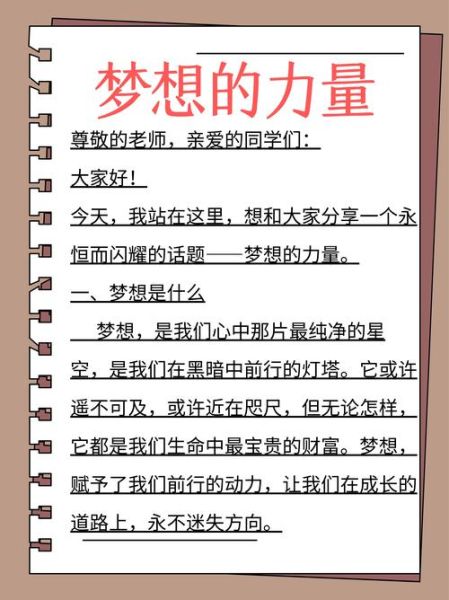 梦想的力量
尊敬的老师，亲爱的同学们：
大家好！
今天，我站在这里，想和大家分享一个永
恒而闪耀的话题——梦想的力量。
一、梦想是什么
梦想，是我们心中那片最纯净的星
空，是我们在黑暗中前行的灯塔。它或许
遥不可及，或许近在咫尺，但无论怎样，
它都是我们生命中最宝贵的财富。梦想，
赋予了我们前行的动力，让我们在成长的
道路上，永不迷失方向。